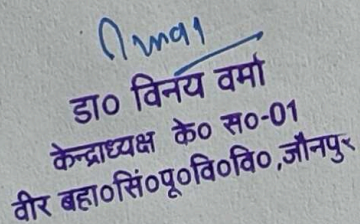 डा० विनय वर्मा
केन्द्राध्यक्ष के० स०-01
वीर बहा०सिं०पू०वि०वि०,जौनपुर